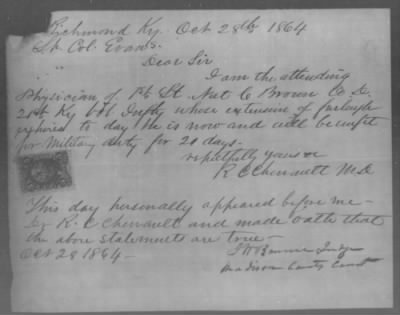 Richmond Ky. Oct 28th 1864
Lt Col. Evans.
Dear Sir
I am the attending
Physician of 1st Lt. Nat C Brown Co D.
21st Ky Vol Infty whose extension of furlough
expires to day He is now and will be unfit
for Military duty for 20 days.
respectfully yours
R C Chenault M.D
This day personally appeared before me
R. C Chenault and made oath that
the above statements are true
Oct 28 1864
Judge
Madison County Court